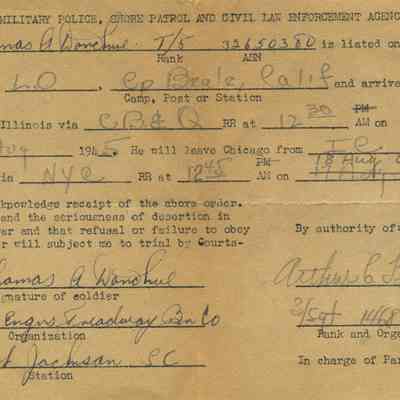 MILITARY POLICE, SHORE PATROL AND CIVIL LAW ENFORCEMENT AGENC
mas A Donohue T/5 32650380 is listed on
Rank ASN
Cp Beale, Calif and arrive
Camp, Post or Station
Illinois via CB&Q RR at 12 30 PM AM on
Aug 1945. He will leave Chicago from I C
in NYC RR at 12 45 PM AM on 18 Aug
knowledge receipt of the above order.
end the seriousness of desertion in
ar and that refusal or failure to obey By authority of
r will subject me to trial by Courts-
homas A Donohue Arthur C
gnature of soldier
Engrs Treadway Bn Co S/Sgt 1468
Organization Rank and Orga
Jackson SC In charge of Par
Station